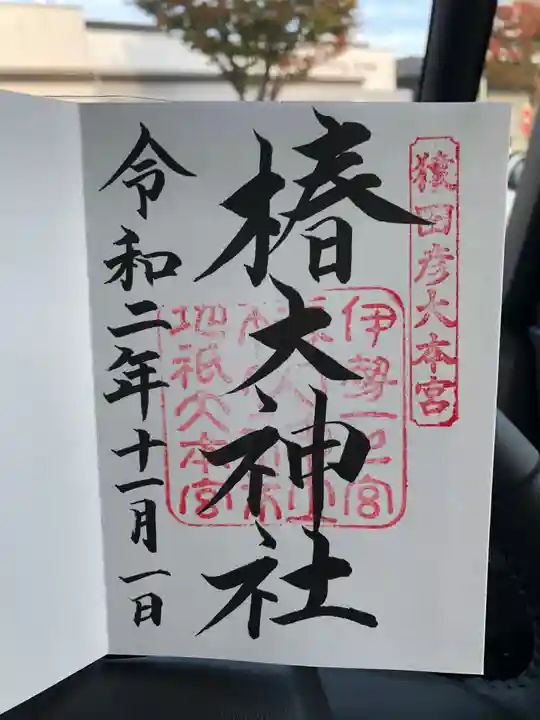 猿田彦大本宮
椿大神社
伊勢一之宮
地祇大本宮
令和二年十一月一日